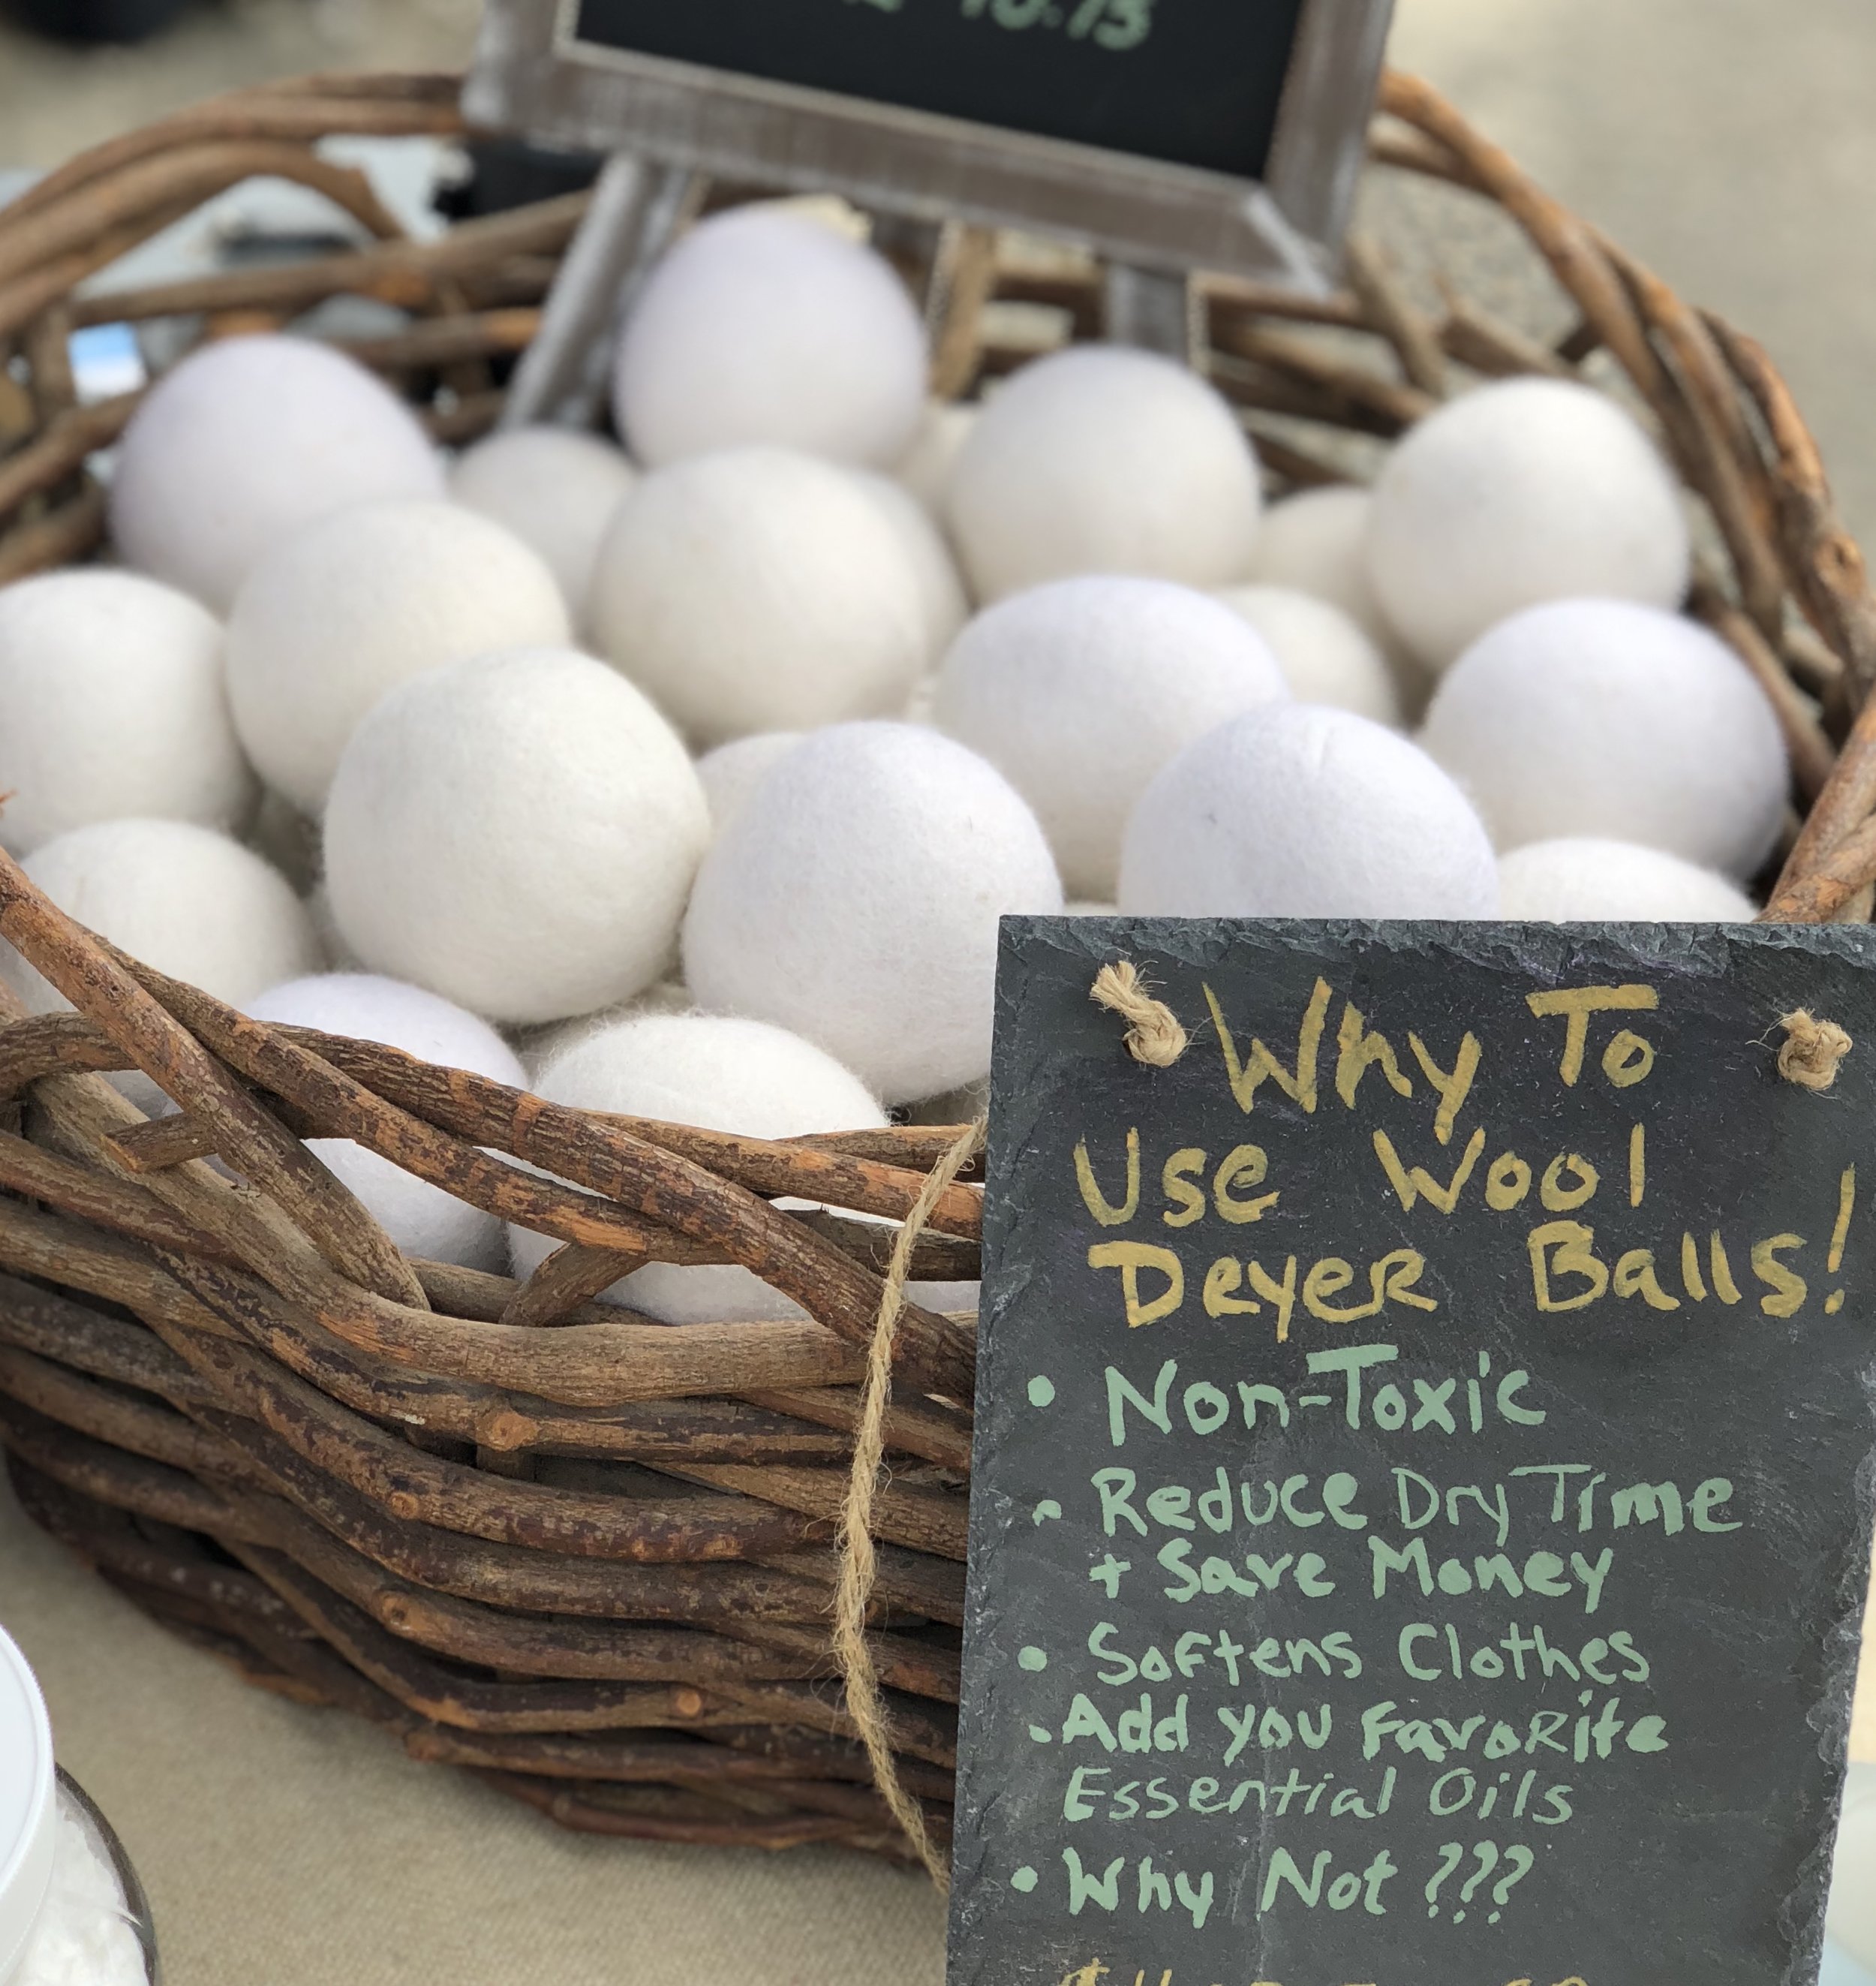 Why To
Use Wool
Dryer Balls!
• Non-Toxic
• Reduce Dry Time
+ Save Money
• Softens Clothes
• Add you Favorite
Essential Oils
• Why Not ???